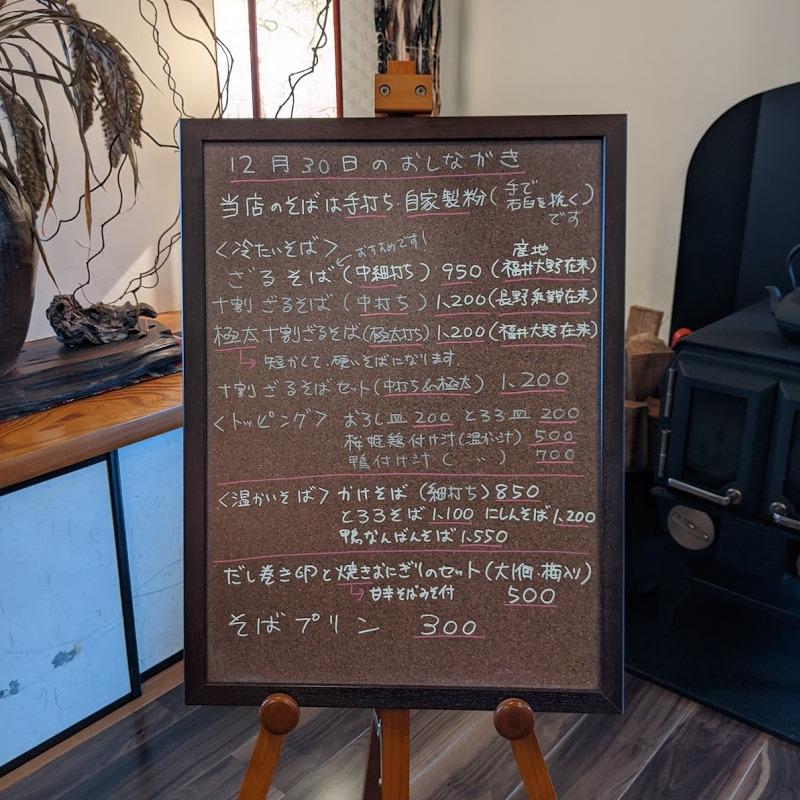 12月30日のおしながき
当店のそばは手打ち 自家製粉(手で石臼を挽くです)
<冷たいそば> おすすめです! 産地
ざるそば(中細打ち) 950 (福井大野在来)
十割ざるそば(中打ち) 1,200 (長野乗鞍在来)
極太十割ざるそば(極太打ち) 1,200 (福井大野在来)
短かくて、硬いそばになります
十割ざるそばセット(中打ち&極太) 1,200
<トッピング> おろし皿 200 とろろ皿 200
桜姫鶏付け汁(温か汁) 500
鴨付け汁( 〃 ) 700
<温かいそば> かけそば(細打ち) 850
とろろそば 1,100 にしんそば 1,200
鴨なんばんそば 1,550
だし巻き卵と焼きおにぎりのセット(大1個・梅入り)
甘辛そばみそ付 500
そばプリン 300